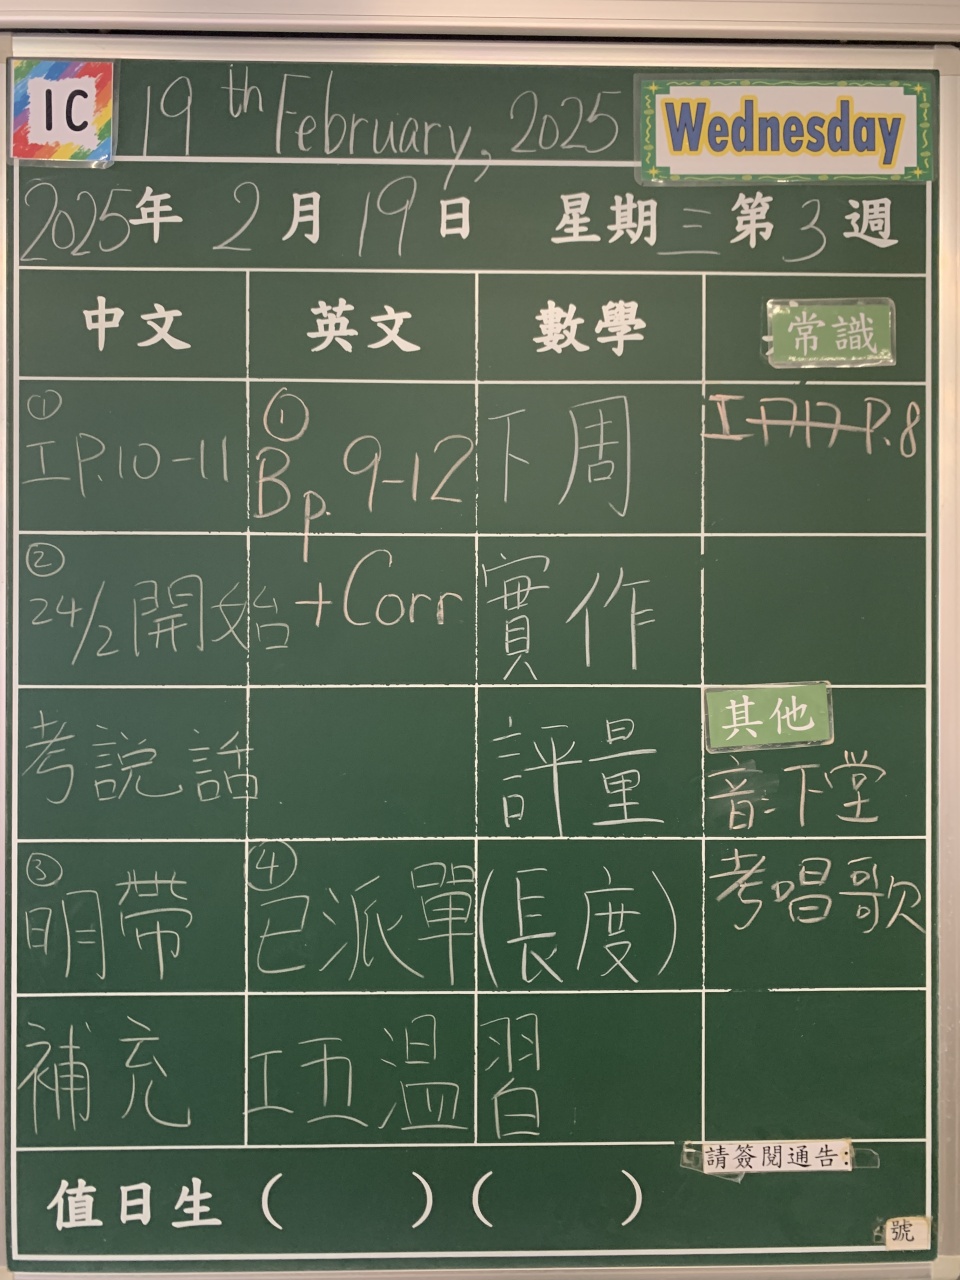 1C
19th February, 2025
Wednesday
2025年 2月 19日 星期三 第3週
中文
英文
數學
常識
①
工P.10-11
②
24/2開始
考說話
③
明帶
補充
①
Bp. 9-12
+Corr
下周
實作
評量
(長度)
④
已派單
工五溫習
P.8
其他
音:下堂
考唱歌
請簽閱通告:
值日生 ( ) ( )
號